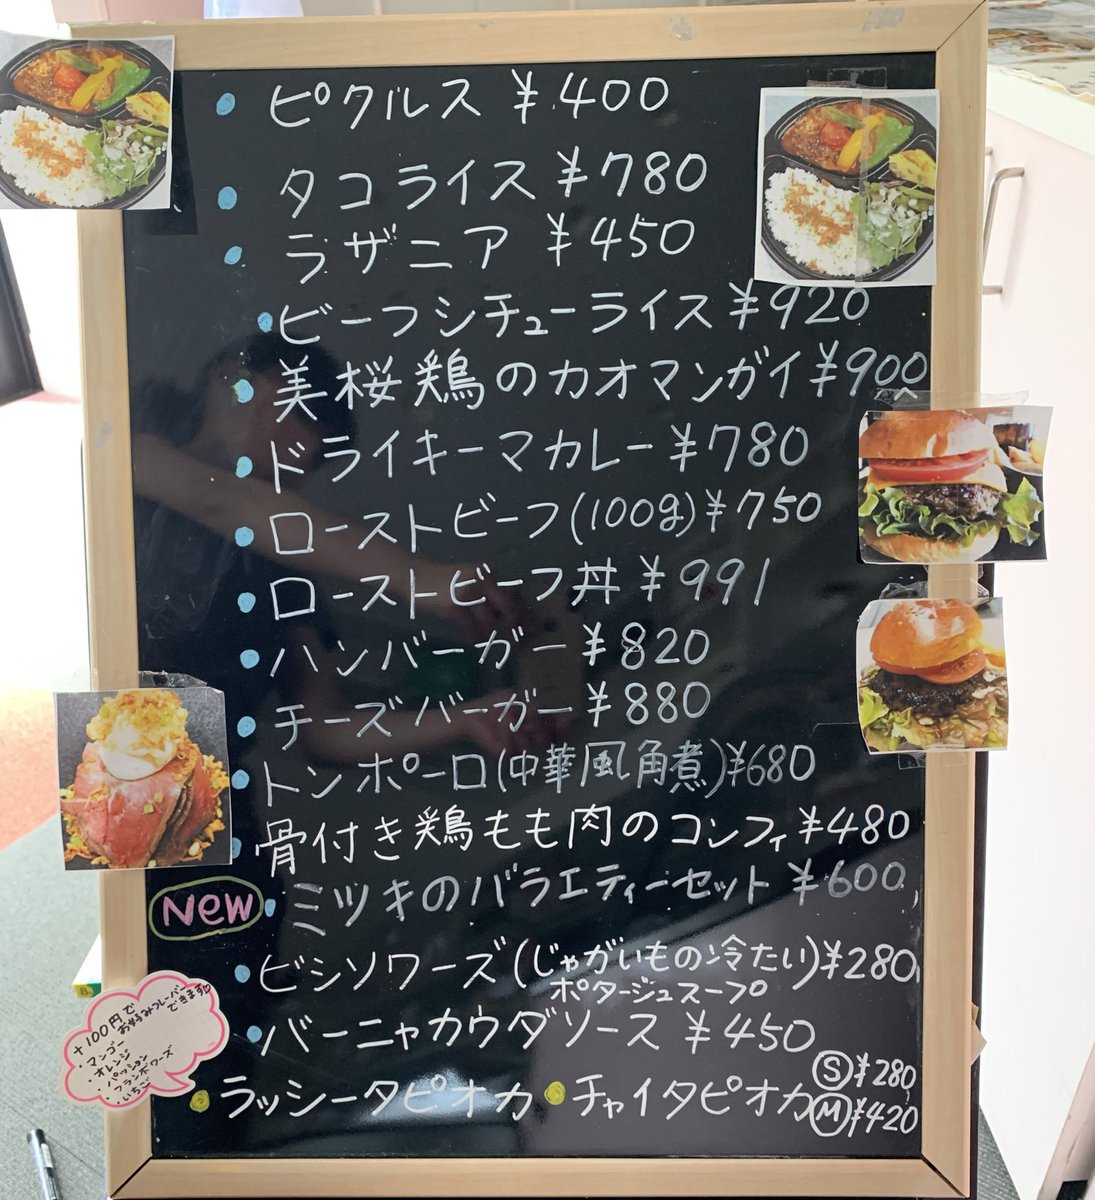 ・ピクルス ¥400
・タコライス ¥780
・ラザニア ¥450
・ビーフシチューライス ¥920
・美桜鶏のカオマンガイ ¥900
・ドライキーマカレー ¥780
・ローストビーフ(100g) ¥750
・ローストビーフ丼 ¥991
・ハンバーガー ¥820
・チーズバーガー ¥880
・トンポーロ(中華風角煮) ¥680
・骨付き鶏もも肉のコンフィ ¥480
New ・ミツキのバラエティーセット ¥600
・ビシソワーズ(じゃがいもの冷たい) ¥280
ポタージュスープ
・バーニャカウダソース ¥450
・ラッシータピオカ ・チャイタピオカ
Ⓢ ¥280
Ⓜ ¥420
+100円で
お好みフレーバー
できます♡
・マンゴー
・オレンジ
・パッション
・フランボワーズ
・いちご